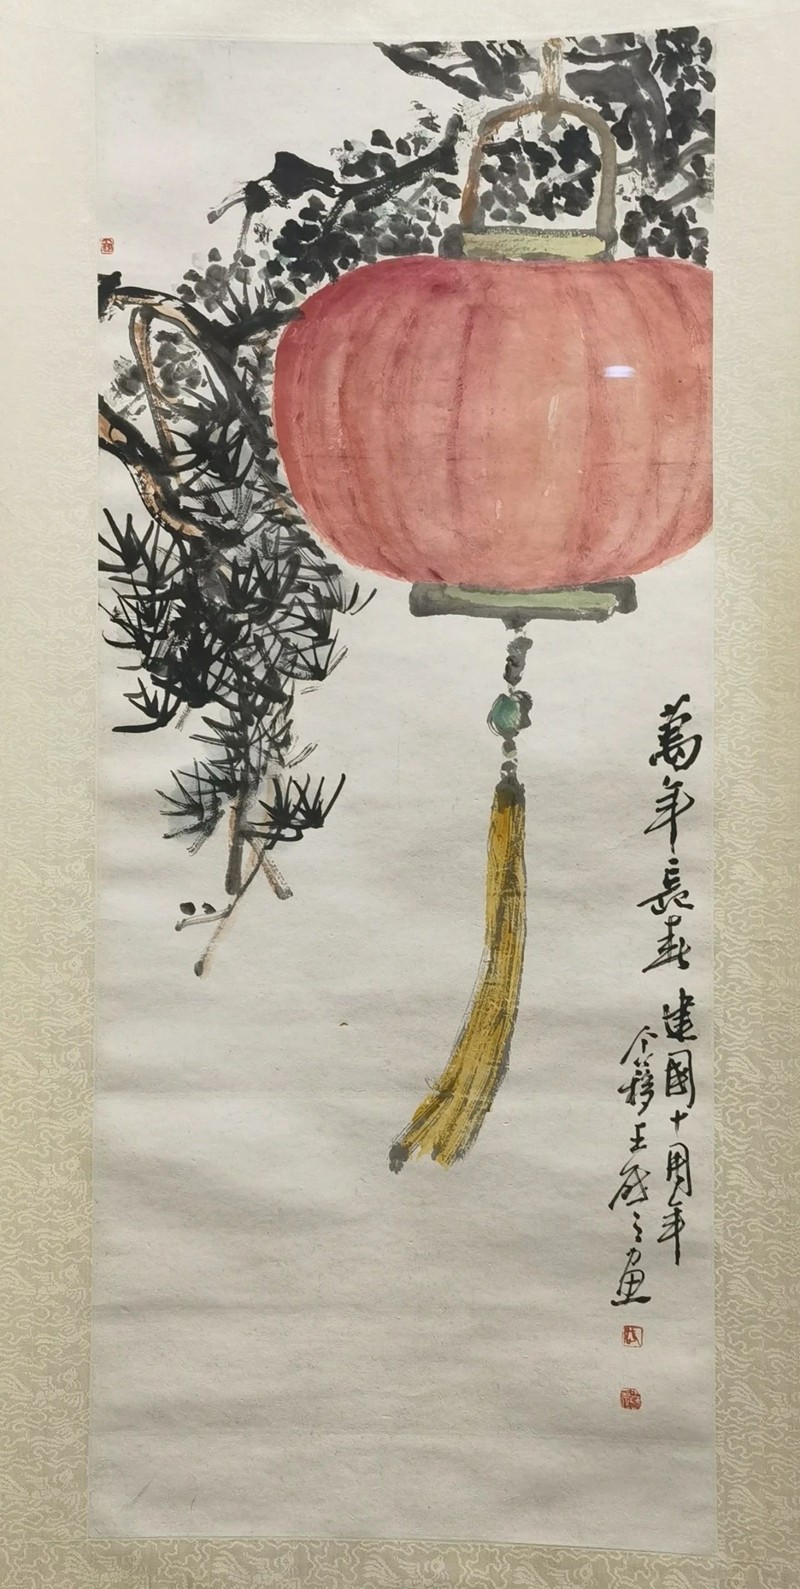 萬年長春 建國十周年
个簃王启之畫